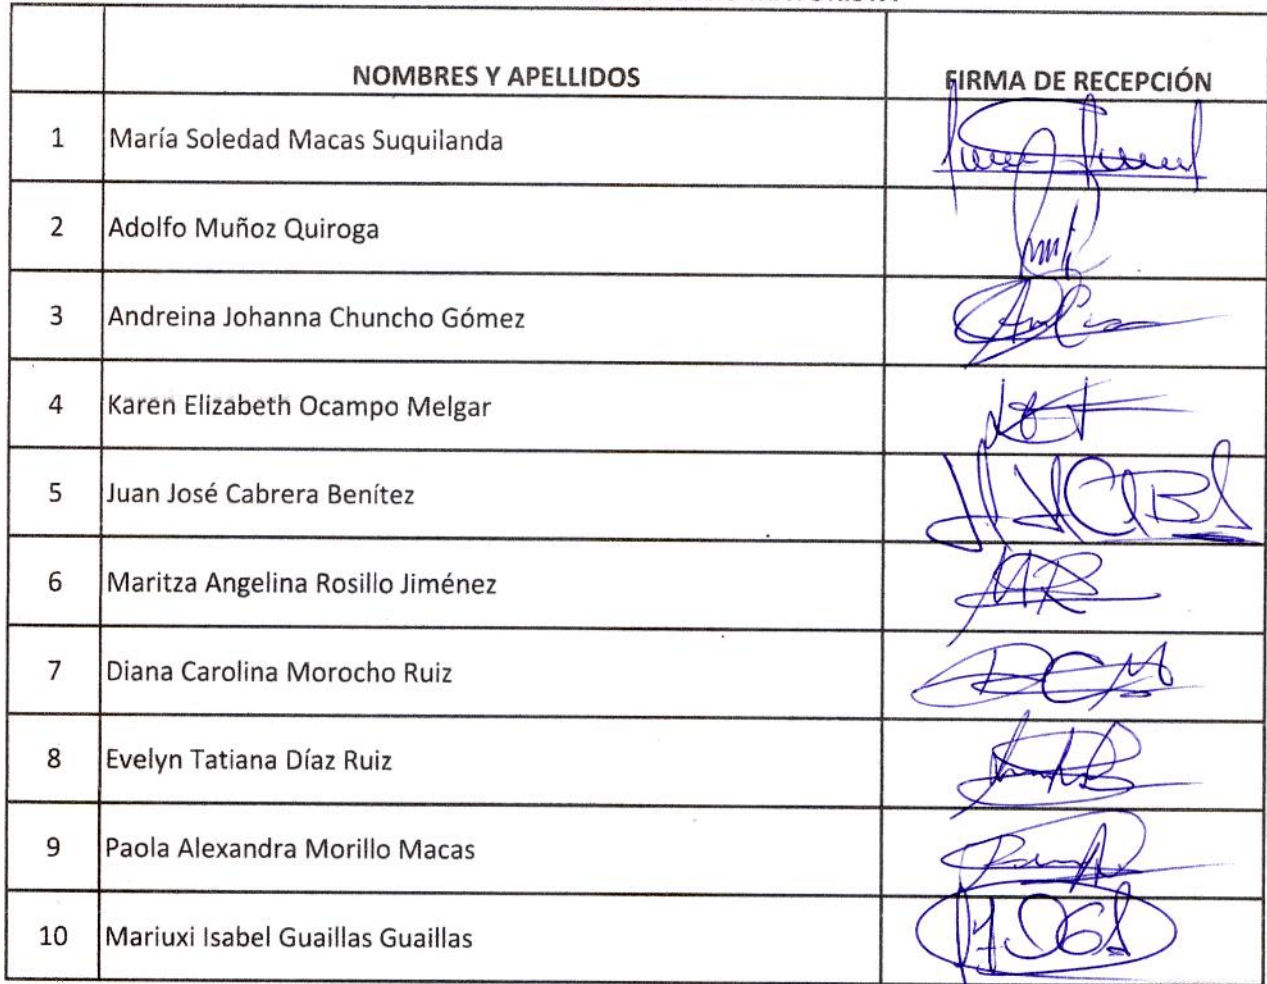 NOMBRES Y APELLIDOS FIRMA DE RECEPCIÓN
1 María Soledad Macas Suquilanda
2 Adolfo Muñoz Quiroga
3 Andreina Johanna Chuncho Gómez
4 Karen Elizabeth Ocampo Melgar
5 Juan José Cabrera Benítez
6 Maritza Angelina Rosillo Jiménez
7 Diana Carolina Morocho Ruiz
8 Evelyn Tatiana Díaz Ruiz
9 Paola Alexandra Morillo Macas
10 Mariuxi Isabel Guaillas Guaillas